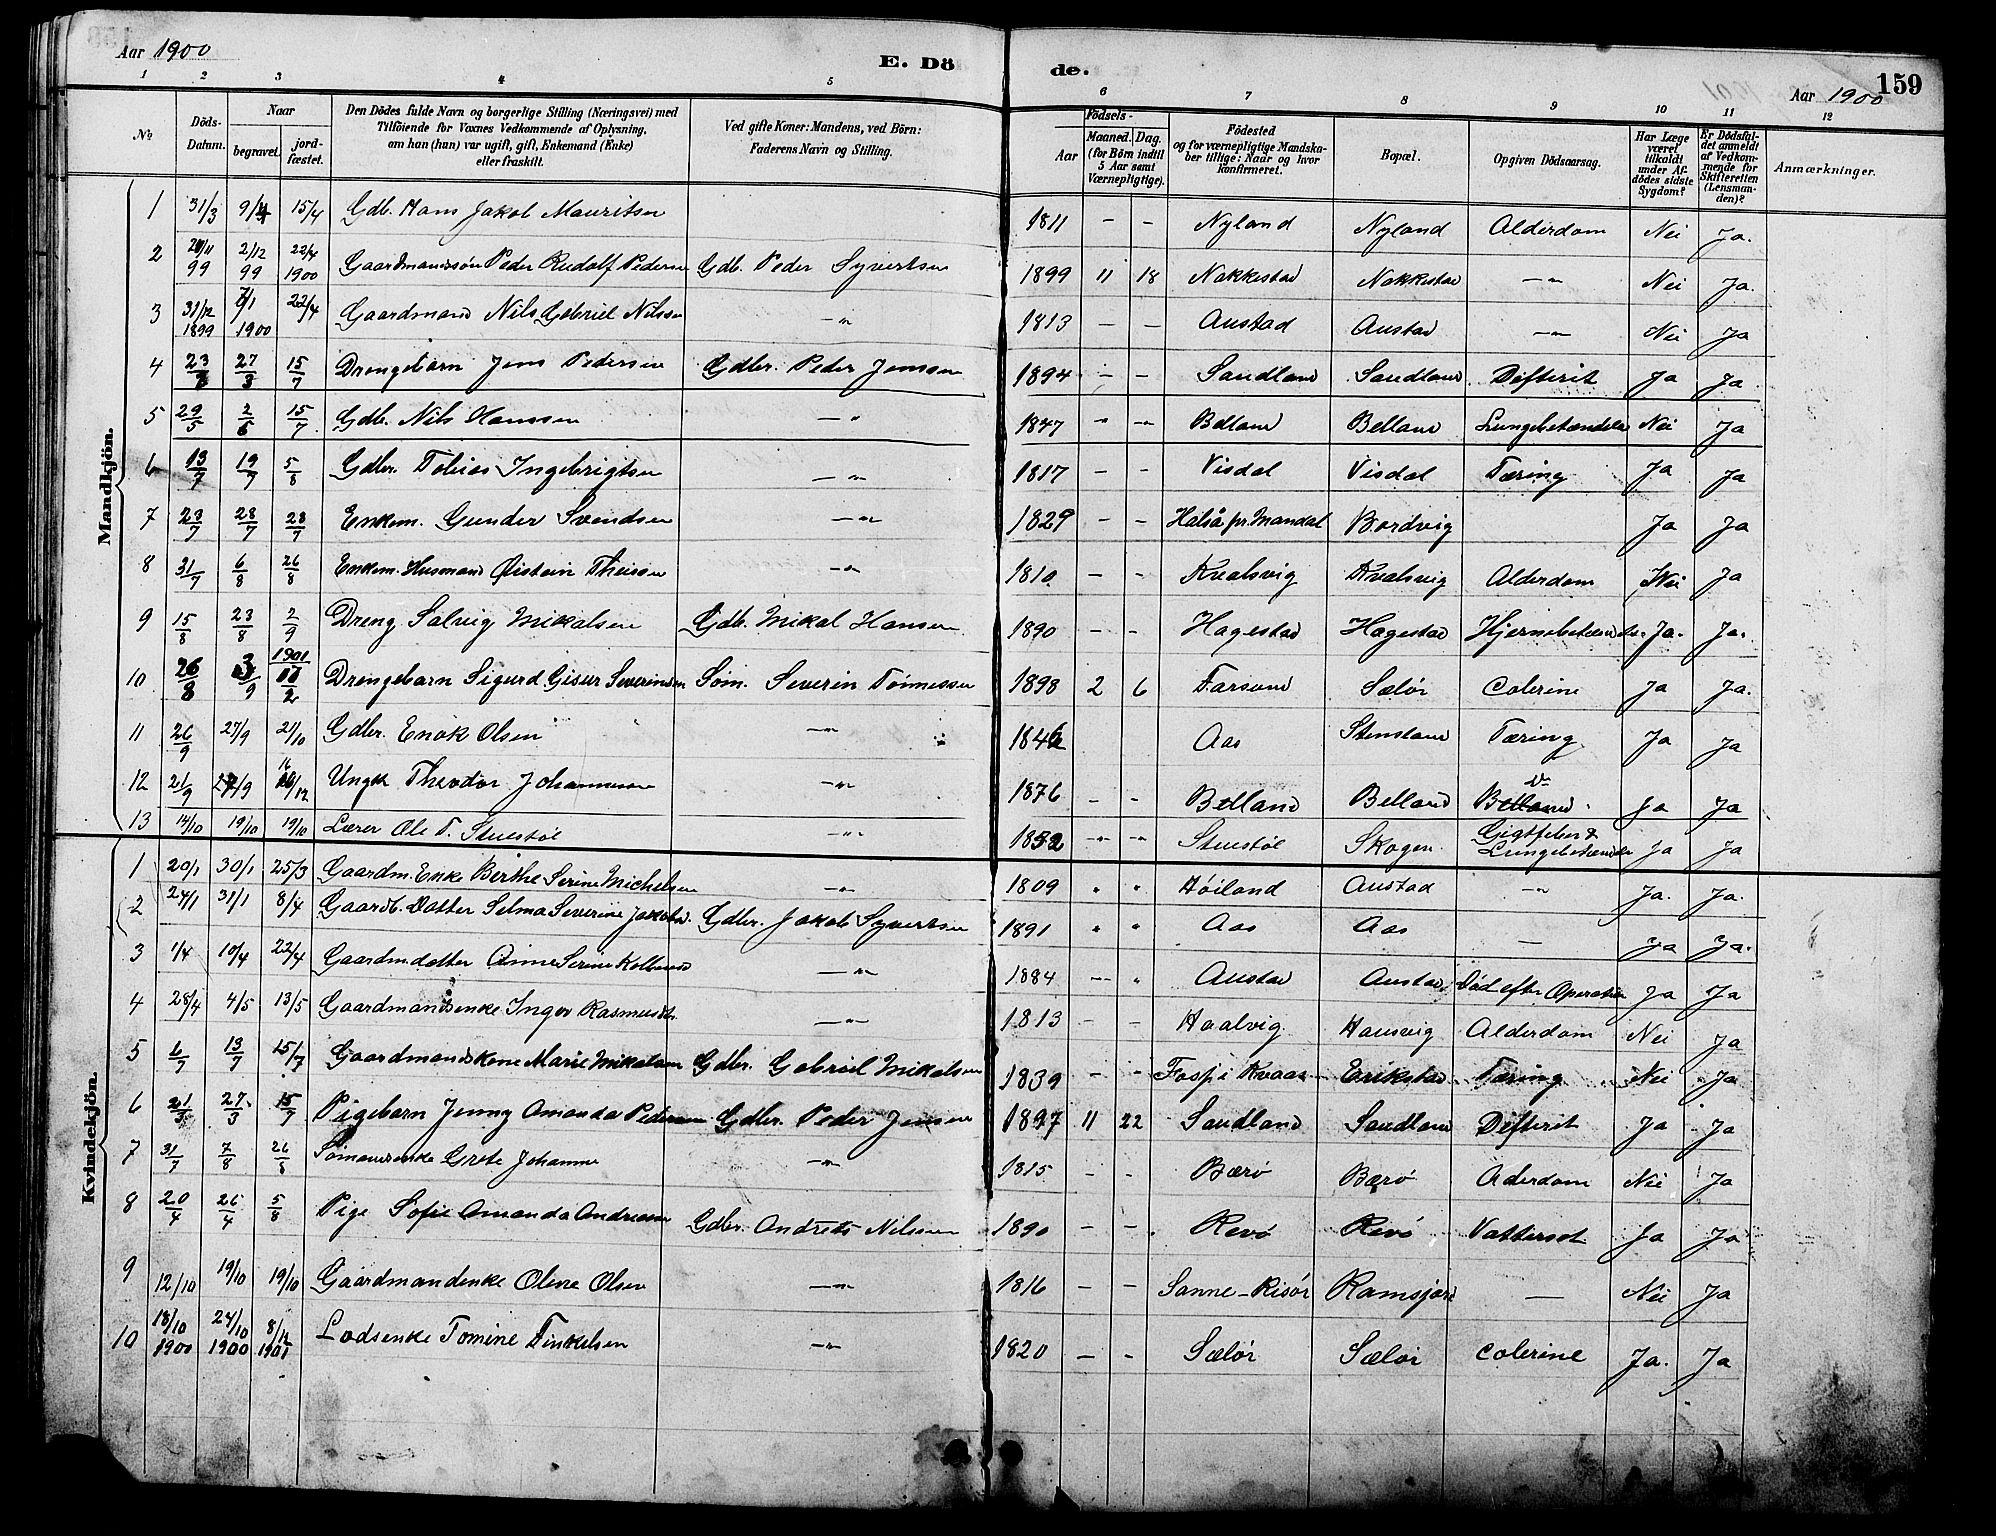 Aar 1900
E. Dö
de.
Aar 1900
159
1 2 3 4 5 6 7 8 9 10 11 12
No
Döds-Datum.
Naar
begravet.
jord-fæstet.
Den Dödes fulde Navn og borgerlige Stilling (Næringsvei) med
Tilföiende for Voxnes Vedkommende af Oplysning,
om han (hun) var ugift, gift, Enkemand (Enke)
eller fraskilt.
Ved gifte Koner: Mandens, ved Börn:
Faderens Navn og Stilling.
Födsels-
Aar
Maaned. Dag.
(for Börn indtil
5 Aar samt
Værnepligtige).
Födested
og for værnepligtige Mandska-
ber tillige: Naar og hvor
konfirmeret.
Bopæl.
Opgiven Dödsaarsag.
Har Læge
været
tilkaldt
under Af-
dödes sidste
Sygdom?
Er Dödsfal-
det anmeldt
af Vedkom-
mende for
Skifteretten
(Lensman-
den)?
Anmærkninger.
Mandkjön.
1 31/3 9/4 15/4 Gdb. Hans Jakob Mauritsen 1811 – – Nyland Nyland Alderdom Nei Ja.
2 99 2/12 99 22/4 1900 Gaardmandssøn Peder Rudolf Pedersen Gdb. Peder Syvertsen 1899 11 18 Nakkestad Nakkestad –"– Nei Ja.
3 31/12 1899 1900 22/4 Gaardmand Nils Gabriel Nilssen –"– 1813 – – Austad Austad –"– Nei Ja
4 23 27/3 15/7 Drengebarn Jens Pedersen Gdbr. Peder Jenssen 1894 – – Sandland Sandland Difterit Ja Ja
5 29/5 2/6 15/7 Gdb. Nils Hanssen –"– 1847 " –"– Belland Belland Lungebetændelse Nei Ja
6 13/7 19/7 5/8 Gdbr. Tobias Ingebrigtsen –"– 1817 – – Visdal Visdal Tæring Ja Ja
7 23/7 28/7 28/7 Enkem. Gunder Svendsen –"– 1829 – – Halså pr. Mandal Bordvig Ja Ja
8 31/7 6/8 26/8 Enkem. Husmand Øistein Theissen –"– 1810 – – Kvalsvig Kvalsvig Alderdom Nei Ja
9 15/8 23/8 2/9 Dreng Salvig Mikalsen Gdb. Mikal Hansen 1890 – – Hagestad Hagestad Ja. Ja.
10 26/8 3/9 1901 17/2 Drengebarn Sigurd Gisur Severinsen Søm. Severin Tønnessen 1898 2 6 Farsund Sælør Colerine Ja Ja.
11 26/9 27/9 21/10 Gdbr. Enok Olsen –"– 1846 Aas Stensland Tæring Ja Ja
12 21/9 27/9 16/12 Ungk. Theodor Johannessen –"– 1876 – – Belland Belland Ja Ja
13 14/10 19/10 19/10 Lærer Ole T. Stuestøl –"– 1852 –"– –"– Stuestøl Skogen Gigtfeber & Lungebetændelse Ja Ja
Kvindekjön.
1 20/1 30/1 25/3 Gaardm. Enke Berthe Serine Michelsen –"– 1809 " " Høiland Austad –"– Ja. Ja.
2 24/1 31/1 8/4 Gaardb. Datter Selma Severine Jakobsd. Gdbr. Jakob Syvertsen 1891 " " Aas Aas – Ja Ja.
3 1/4 10/4 22/4 Gaardmdatter Anne Serine –"– 1884 –"– " Austad Austad Død efter Operation Ja Ja
4 28/4 4/5 13/5 Gaardmandsenke Inger Rasmusdtr. –"– 1813 – – Haalvig Hausvig Alderdom Nei Ja
5 6/7 13/7 15/7 Gaardmandskone Marie Mikalsen Gdbr. Gabriel Mikalsen 1839 – – Erikstad Tæring Nei Ja
6 21/3 27/3 15/7 Pigebarn Jenny Amanda Pedersen Gdbr. Peder Jenssen 1897 11 22 Sandland Sandland Difterit Ja Ja
7 31/7 7/8 26/8 Sømandsenke Grete Johanne –"– 1815 – – Bærø Bærø Alderdom Nei Ja
8 20/4 26/4 5/8 Pige Sofie Amanda Andreassen Gdbr. Andreas Nilssen 1890 – – Revø Revø Vattersot Ja Ja
9 12/10 19/10 19/10 Gaardmandenke Olene Olsen –"– 1816 – – Sanne-Risør Ramsjord – Nei Ja
10 18/10 1900 24/10 1900 8/12 1901 Lodsenke Tomine Tinkelsen –"– 1820 – – Sælør Sælør Colerine Ja. Ja